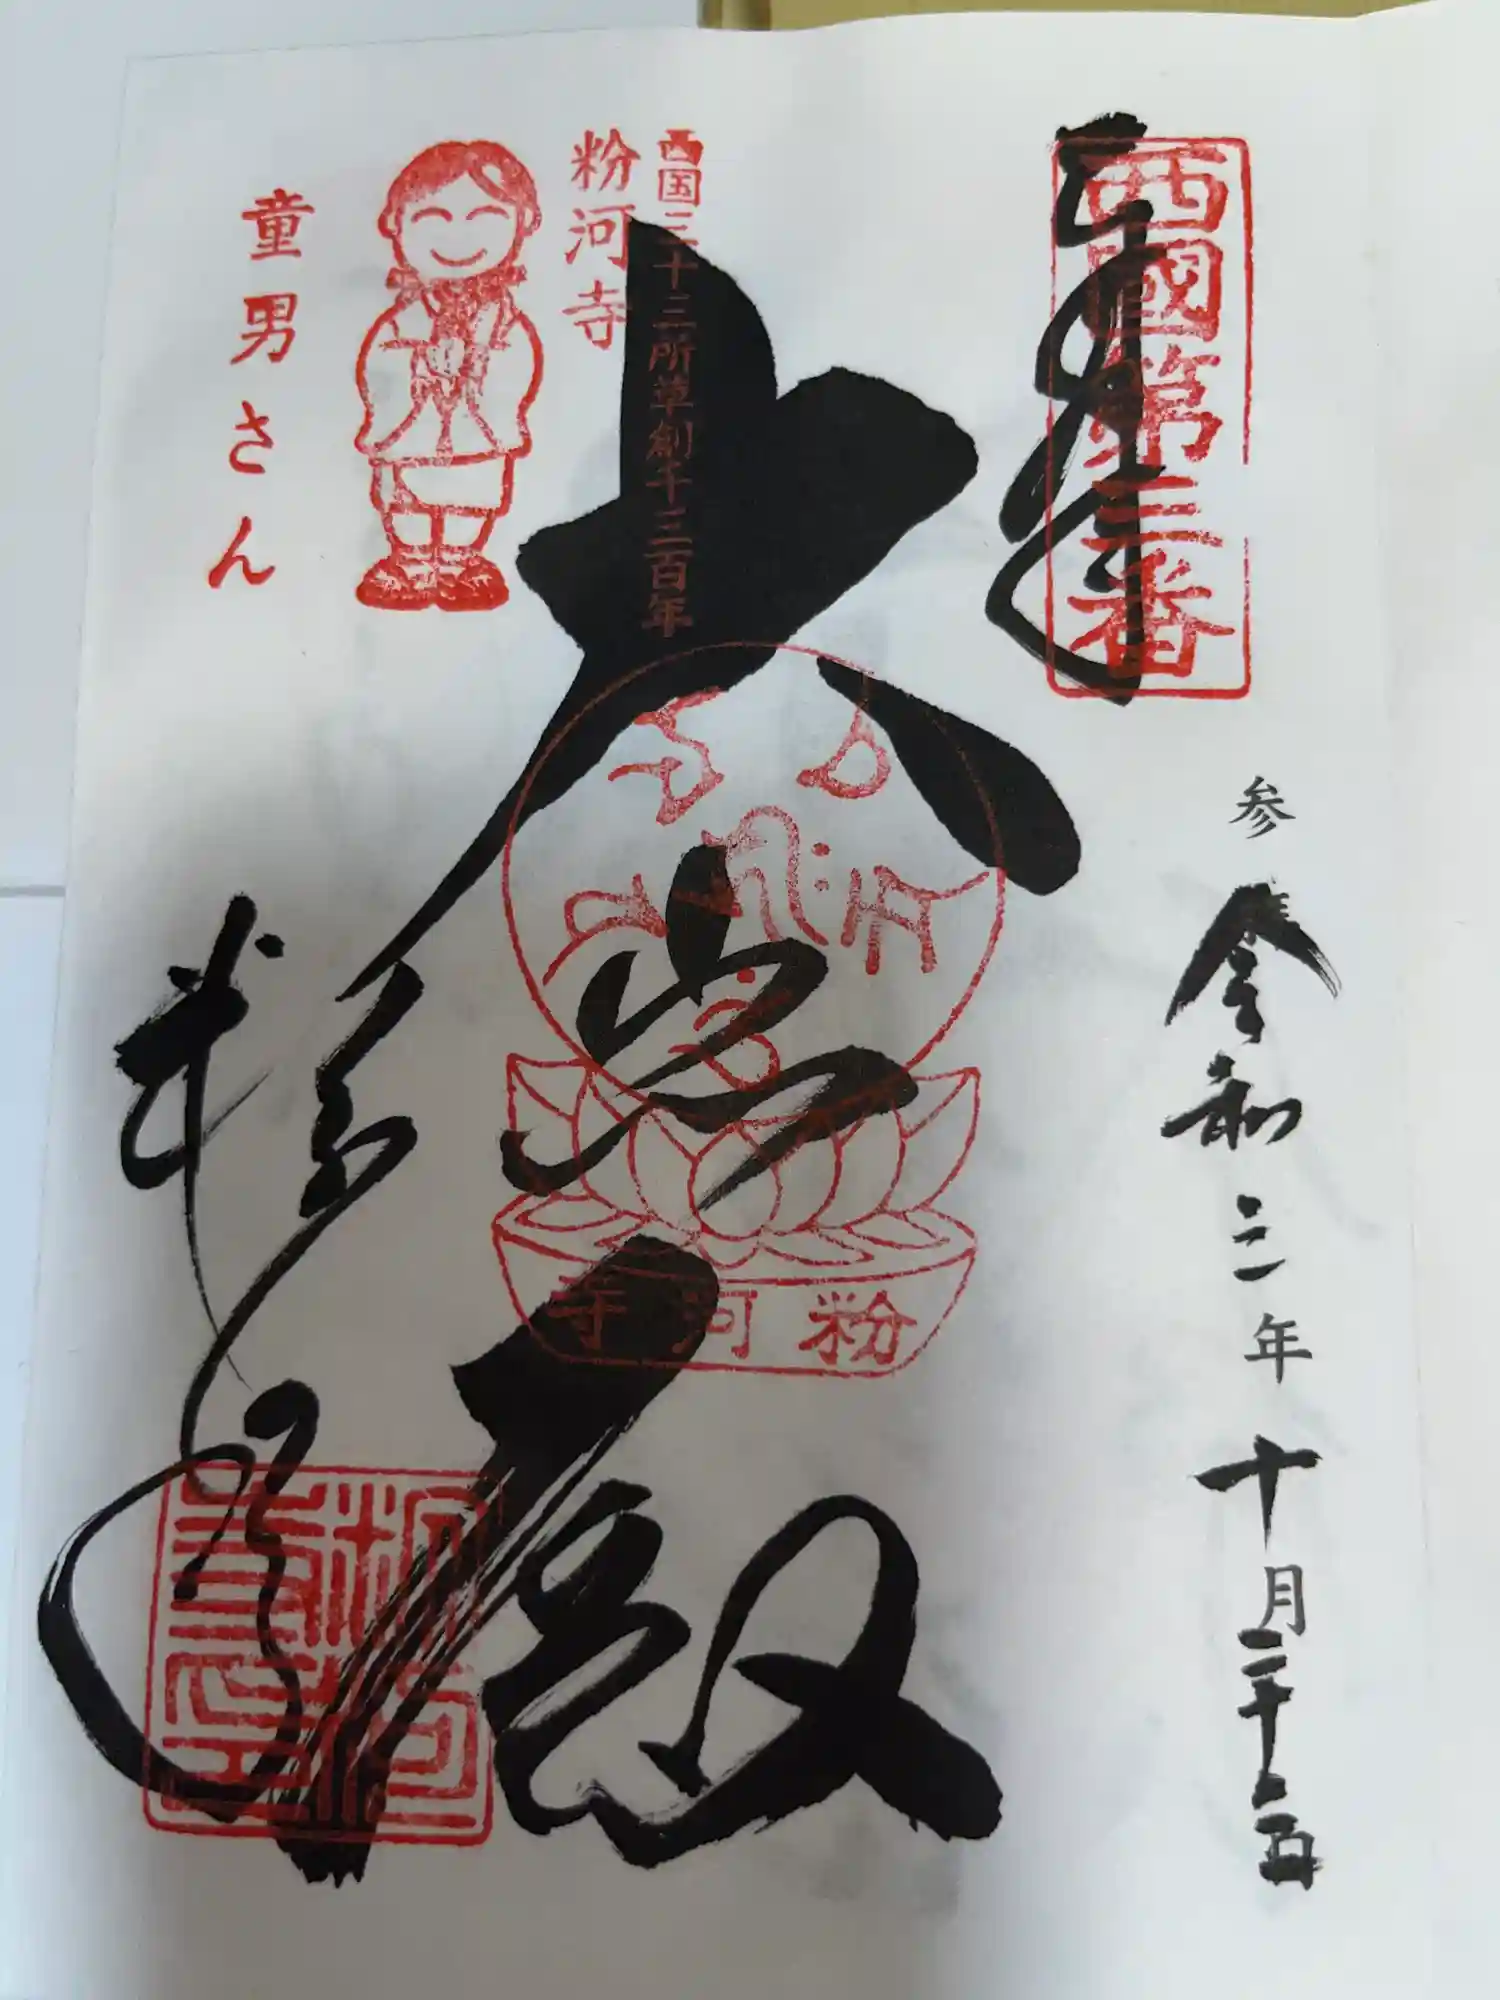 奉拝
西國第三番
参拝
令和三年十月二十二日
大悲殿
西国三十三所草創千三百年
粉河寺
童男さん
粉河寺
粉河寺